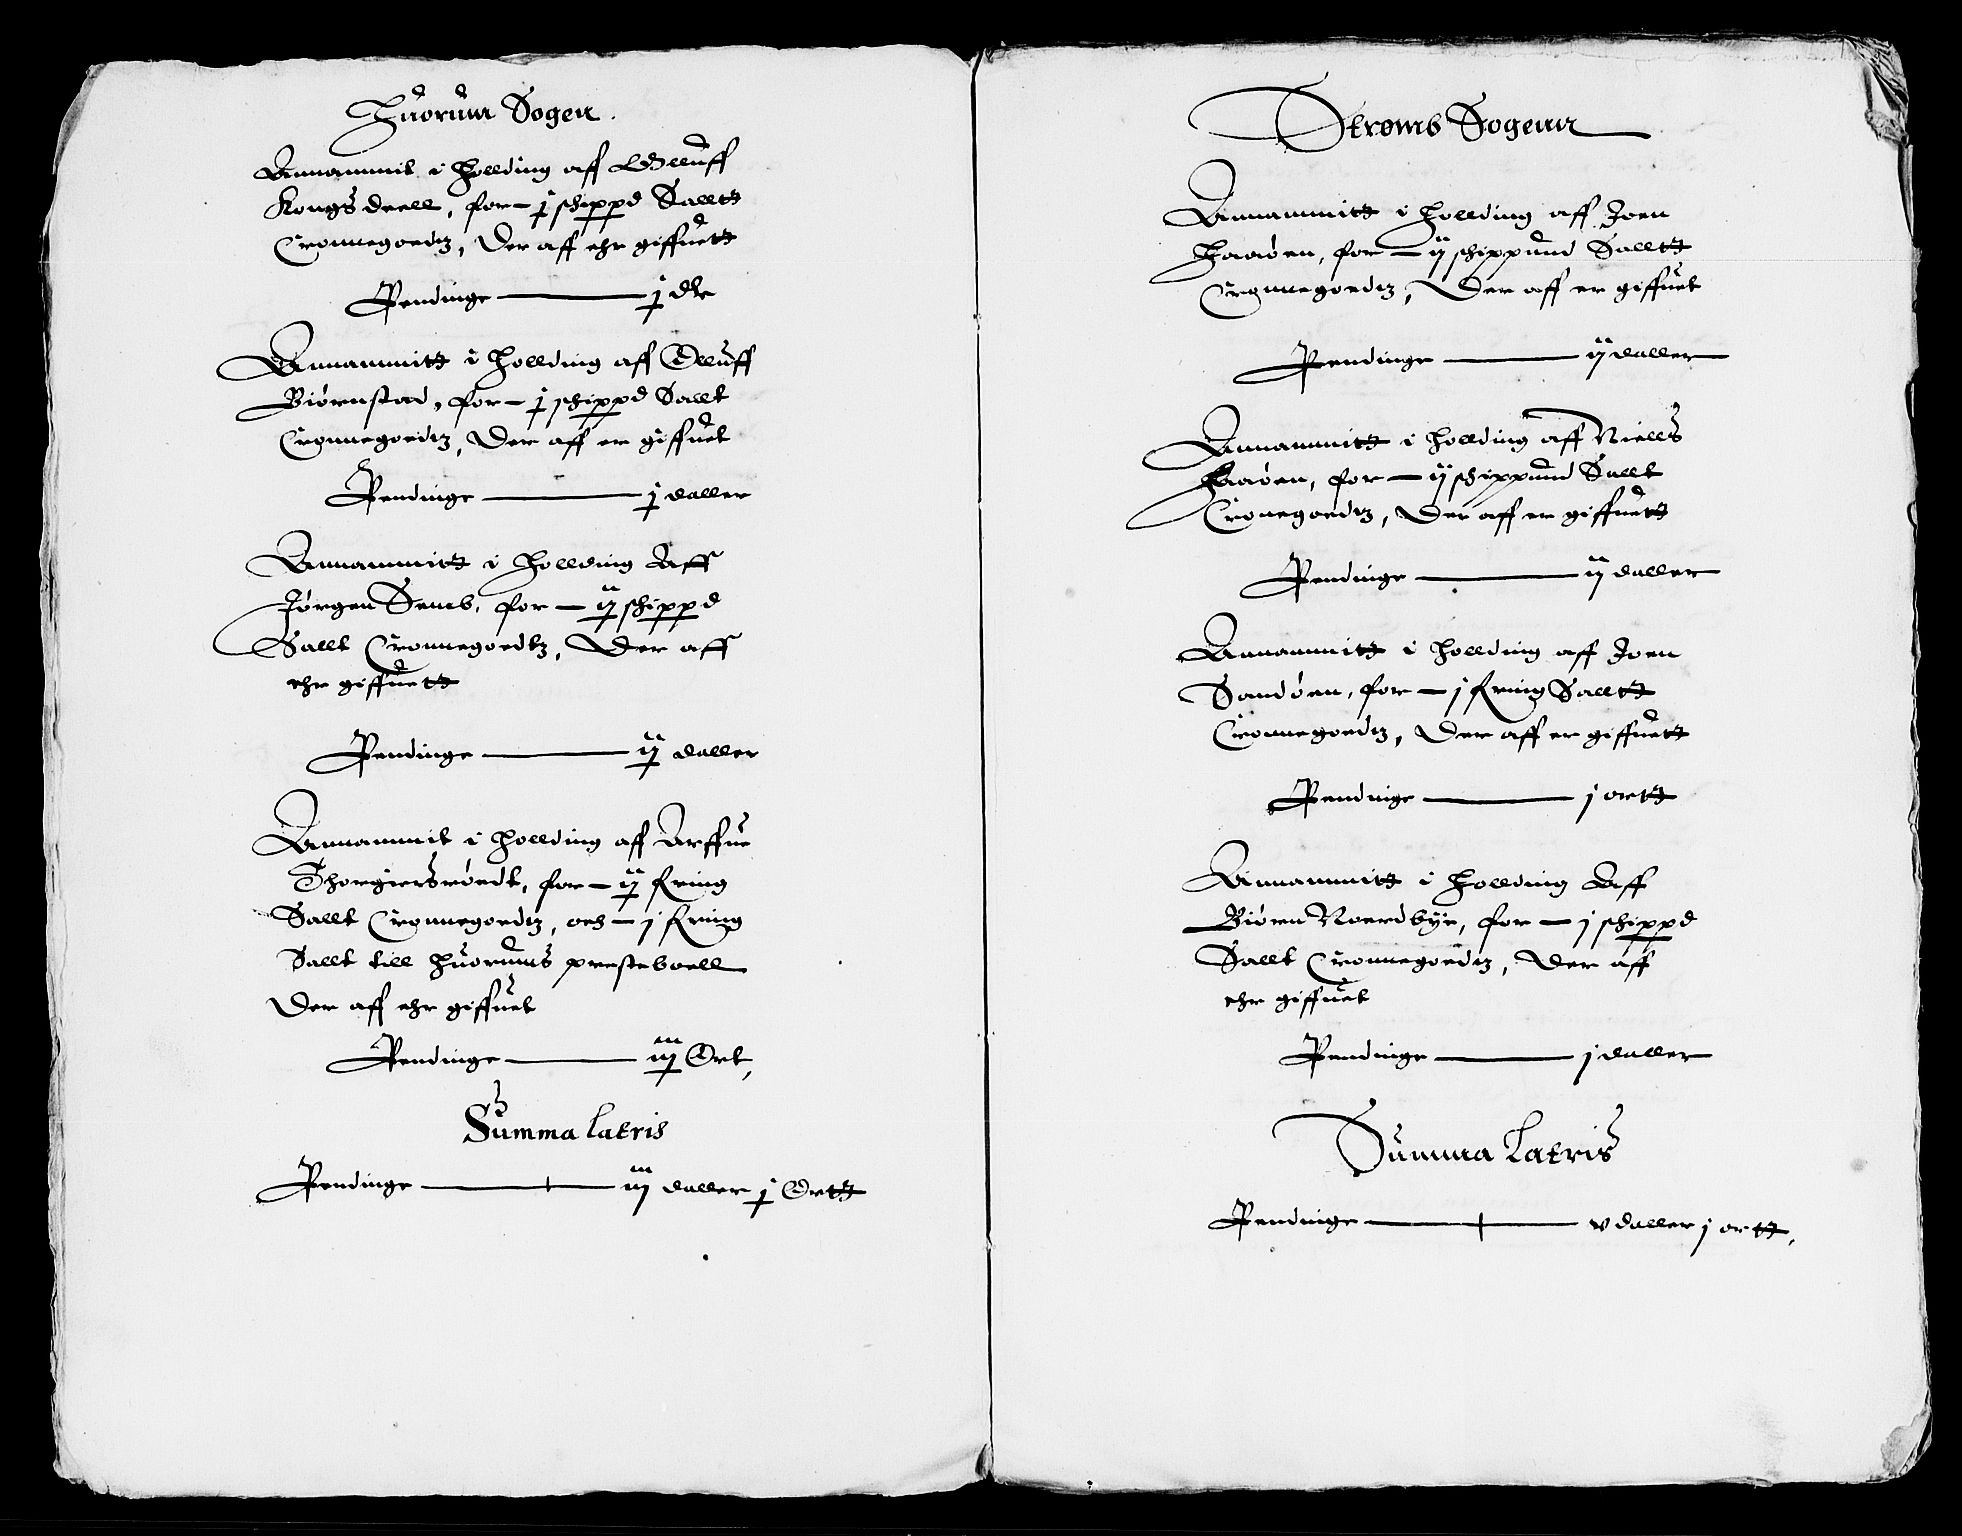 Huorum Sogen.
Annammit i holding aff Elluff
Kongsdeell, for — j schippd Salltt
Cronnegoedtz, Der aff ehr giffuett
Pendinge — j dlr
Annammitt i holding aff Olluff
Biørnstad, for — j schippd Sallt
Cronnegoedtz, Der aff er giffuet
Pendinge — j daller
Annammitt i holding Aff
Jørgen Semb, for — ij schippd
Sallt Cronnegoedtz, Der aff
ehr giffuett
Pendinge — ij daller
Annammit i holding aff Arffue
Thorgiersrøedt, for — ij fring
Sallt Cronnegoedtz, och — j fring
Sallt till Huorums presteboell
Der aff ehr giffuet
Pendinge — iij Ort,
Summa latris
Pendinge — iij daller j Ortt
Strømb Sogenn
Annammitt i holding aff Joen
Haaøen, for — ij schippund Salltt
Cronnegoedtz, Der aff er giffuet
Pendinge — ij daller
Annammitt i holding aff Niells
Haaøen, for — ij schippund Sallt
Cronegoedtz, Der aff er giffuett
Pendinge — ij daller
Annammitt i holding aff Joen
Sandøen, for — j fring Salltt
Cronnegoedtz, Der aff er giffuett
Pendinge — j ortt
Annammitt i holding Aff
Biøren Noerdbye, for — j schippd
Sallt Cronnegoedtz, Der aff
ehr giffuet
Pendinge — j daller
Summa Latris
Pendinge — v daller j ortt,